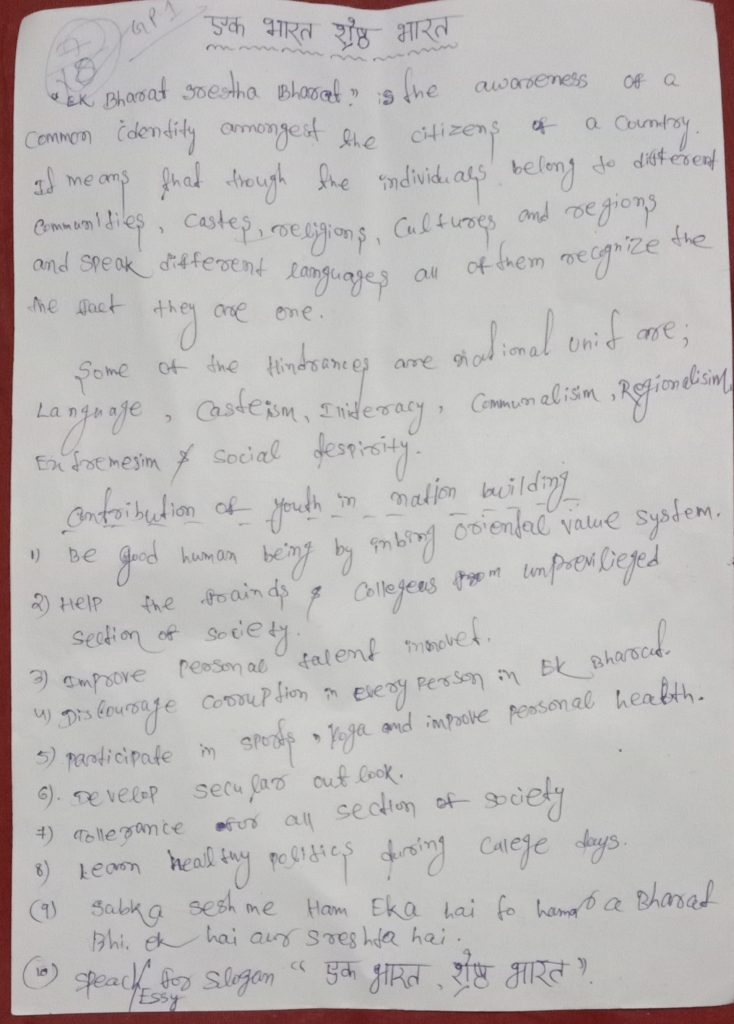 GP1
7
10
एक भारत श्रेष्ठ भारत
"EK Bharat srestha Bharat" is the awareness of a
Common identity amongest the citizens of a Country.
It means that though the individuals belong to different
Communities, Castes, religions, Cultures and regions
and speak different languages all of them recognize the
the fact they are one.
Some of the Hindrances are national unit are;
Language, Casteism, Initeracy, Communalisim, Regionalisim
Extremesim & social despirity.
Contribution of youth in nation building
1) Be good human being by inbing oriental value system.
2) Help the & Collegeus from unprevilieged
section of society.
3) Improve personal talent innovet.
4) Discourage corruption in every person in Ek Bharat.
5) participate in sports, Yoga and improve personal health.
6). Develop secular out look.
7) Tollerance for all section of society
8) Learn healthy politics during Calege days.
(9) Sabka sesh me Ham Eka hai to hamara Bharat
Bhi. ek hai aur sreshta hai.
(10) speach/Essy for slogan "एक भारत, श्रेष्ठ भारत".